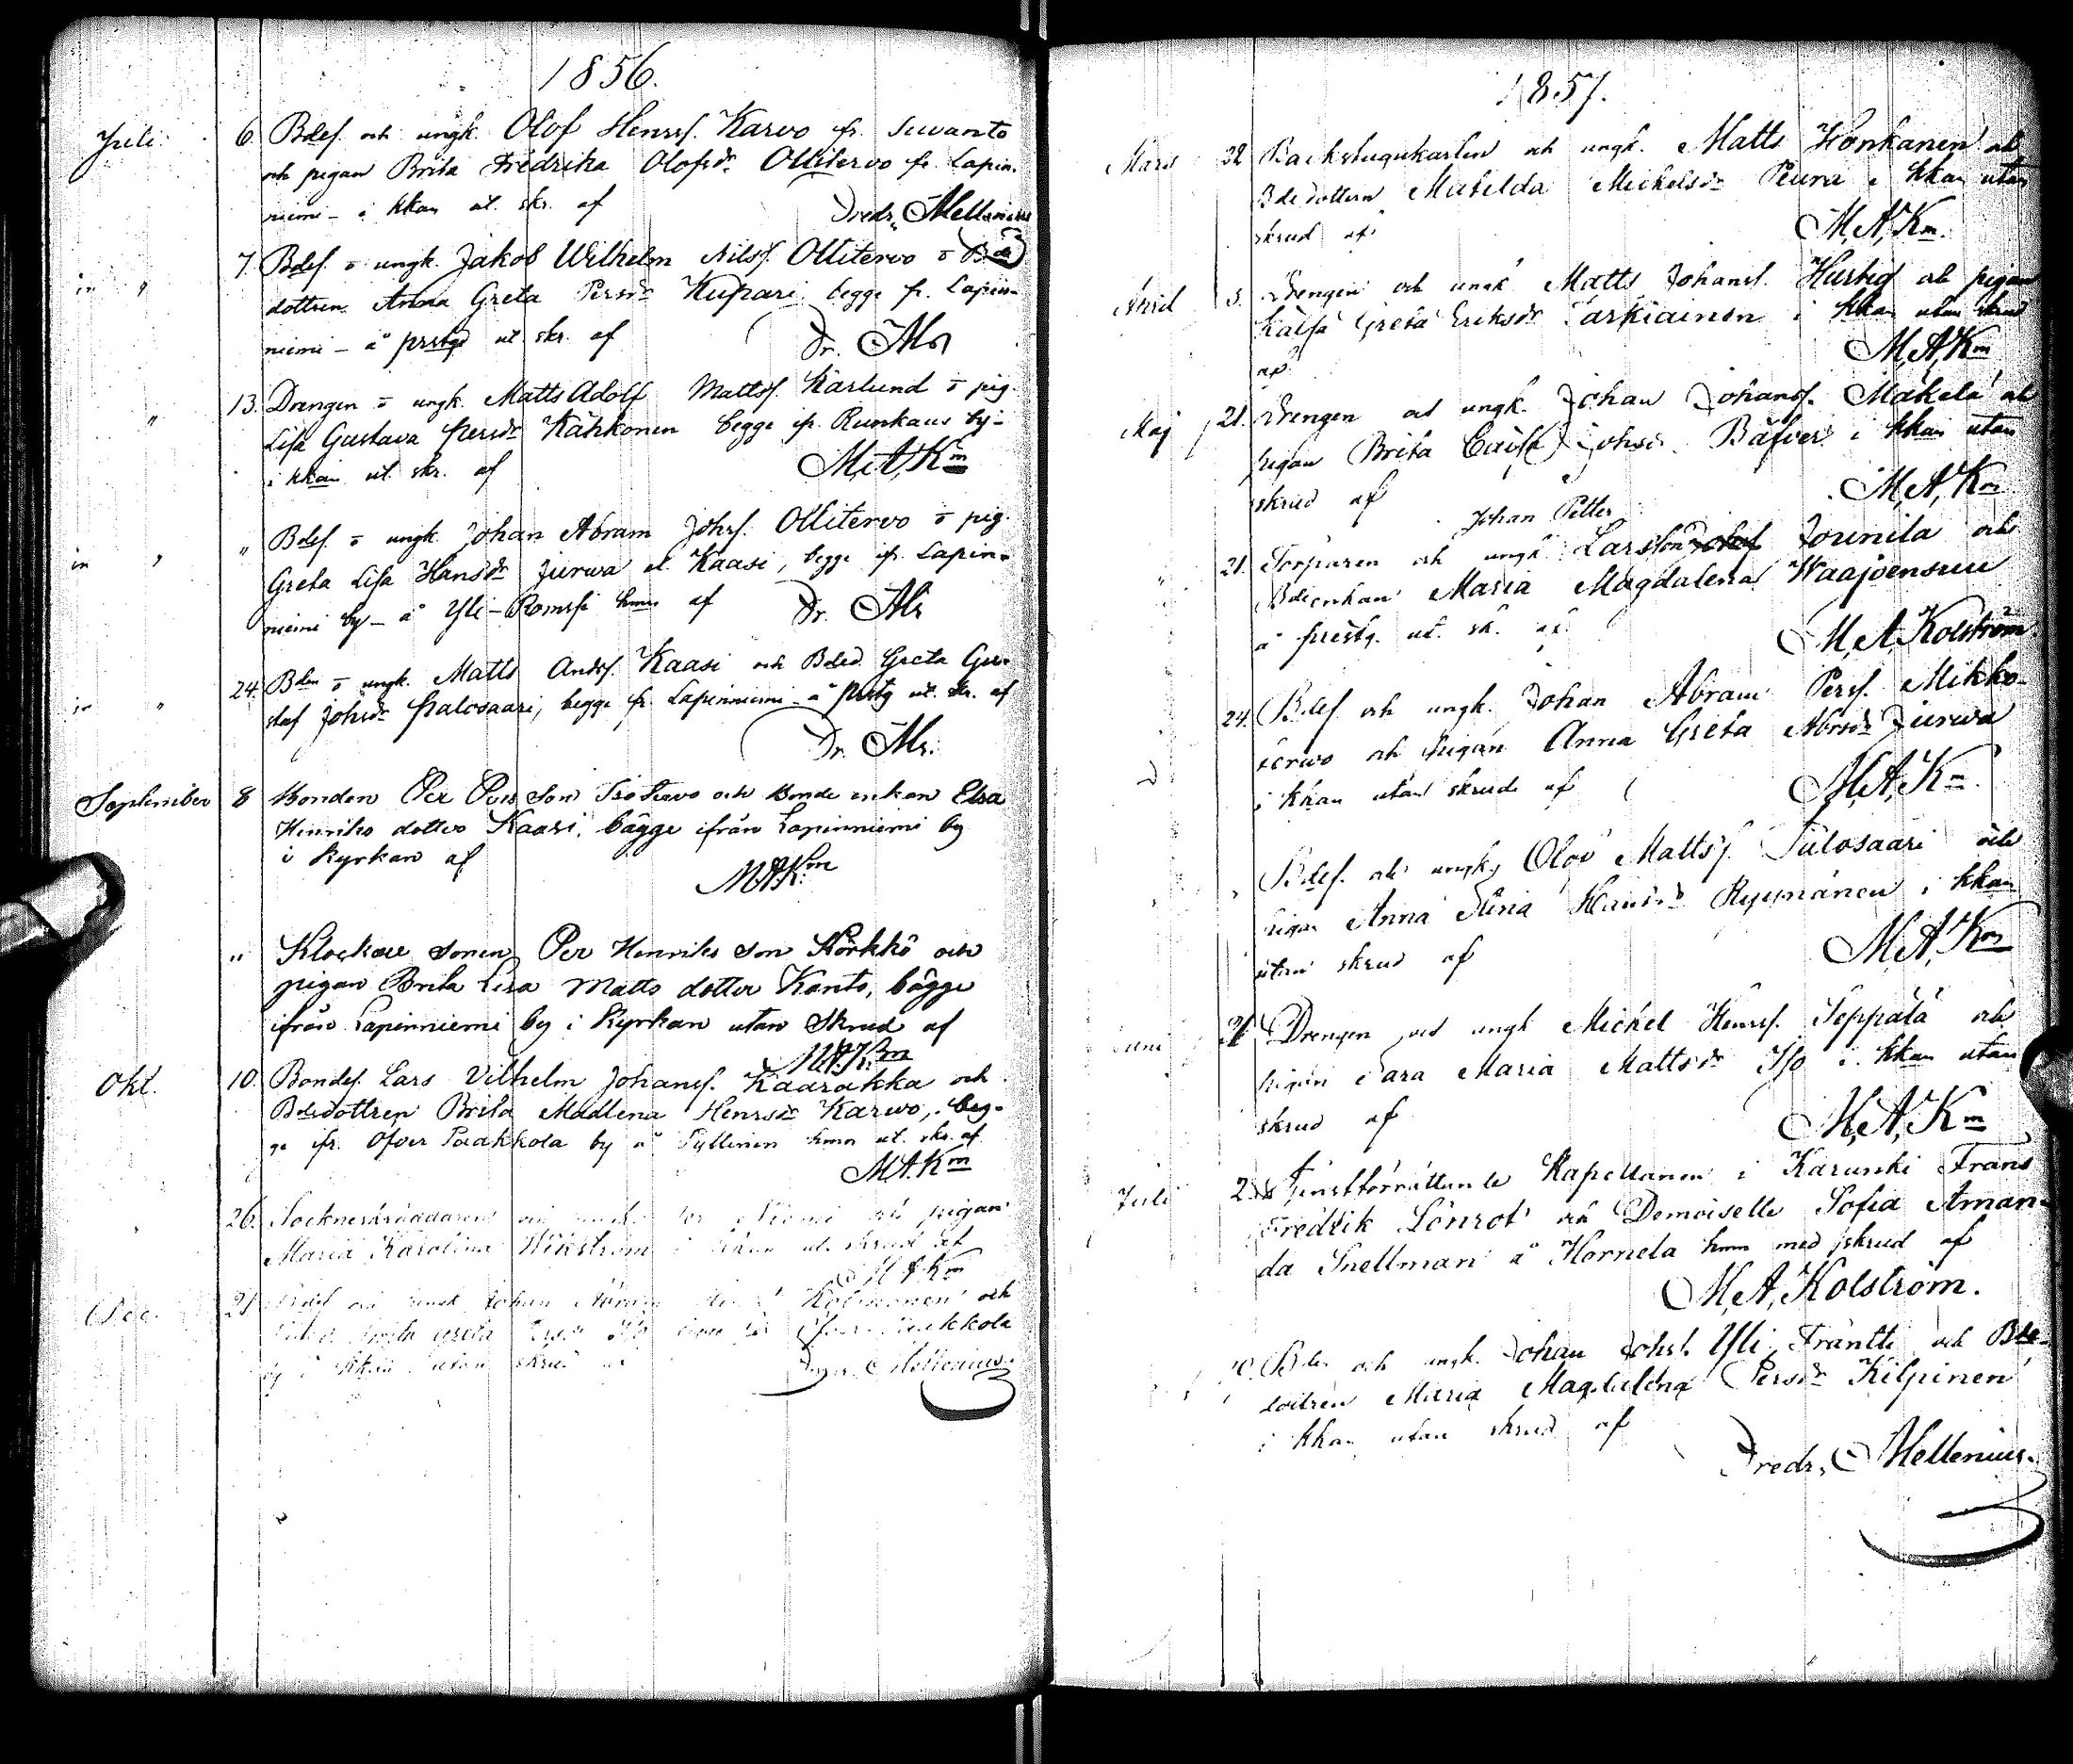 1856.
Juli 6. Bdes. och ungk. Olof Henrss. Karvo fr. Suvanto
och pigan Brita Fredrika Olofsdr Ollitervo fr. Lapin-
niemi - i kkan ut. skr. af Fredr. Mellenius
7. Bdes. o ungk. Jakob Wilhelm Nilss. Ollitervo o Bde
dottren Anna Greta Persdr Kupari begge fr. Lapin-
niemi - å prstgd ut skr. af Fr. Ms
" 13. Drengen o ungk. Matts Adolf Mattss. Karlund o pig.
Lisa Gustava Persdr Kähkönen begge ifr. Runkaus by -
i kkan ut. skr. af M.A.Km
" Bdes. o ungk. Johan Abram Johss. Ollitervo o pig.
Greta Lisa Hansdr Jurwa el. Kaasi, begge ifr. Lapin-
niemi by - å Yli- hmn af Fr. Ms
24. Bden o ungk. Matts Andss. Kaasi och Bded. Greta Gu-
staf Johsdr Palosaari, begge fr. Lapinniemi - å prstg ut. skr. af
Fr. Ms.
September 8 Bonden Per Pers Son och Bonde enkan Elsa
Henriks dotter Kaasi, bägge ifrån Lapinniemi by
i Kyrkan af
MAKm
" Klockare sonen Per Henriks Son Körkkö och
pigan Brita Lisa Matts dotter Kanto, bägge
ifrån Lapinniemi by i Kyrkan utan Skrud af
MAKm
Okt. 10. Bondes. Lars Vilhelm Johanss. Kaarakka och
Bdedottren Brita Madlena Henrsdr Karvo, beg-
ge ifr. Öfver Paakkola by å Pyllinen hmn ut. skr. af
M.A.Km
26. Socknenskräddaren och Niemi och pigan
Maria Karolina Wikström i kkan ut. skrud af
M A Km
Dec. 21 Johan Abram Kolmonen och
Greta Öfver Paakkola
by i kkan utan skrud af Mellenius.
1857.
Mars 22 Backstugukarlen och ungk. Matts Honkanen och
Bdedottern Matilda Mickelsdr Peura i kkan utan
skrud af M.A.Km.
April 5. Drengen och ungk Matts Johanss. Hurtig och pigan
Kaisa Greta Eriksdr Tarkiainen i kkan utan skrud
af M.A.Km
Maj 21. Drengen och ungk. Johan Johanss. Mäkelä och
pigan Brita Caisa Johsdr Bäfver i kkan utan
skrud af M.A.Km
Johan Petter
" 21. Torparen och ungk Larsson Jounila och
Bdeenkan Maria Magdalena Waajoensuu
å prestg. ut. sk. af M.A.Kolström.
24. Bdes. och ungk. Johan Abram Perss. Mikko-
tervo och pigan Anna Greta Abrsdr Jurwa
i kkan utan skrud af M.A.Km.
" Bdes. och ungk. Olov Mattss. Palosaari och
pigan Anna Stina Hansdr Ryynänen i kkan
utan skrud af M.A.Km
Juni 21 Drengen och ungk Mickel Henrss. Seppälä och
pigan Sara Maria Mattsdr Iso i kkan utan
skrud af M.A.Km
Juli 2. Tjenstförrättande Kapellanen i Karunki Frans
Fredrik Lönrot och Demoiselle Sofia Aman-
da Snellman å Hornela hmn med skrud af
M.A.Kolström.
Bdes och ungk. Johan Johss. Yli Fräntti och Bde-
dottren Maria Magdalena Persdr Kilpinen
i kkan utan skrud af
Fredr. Mellenius.